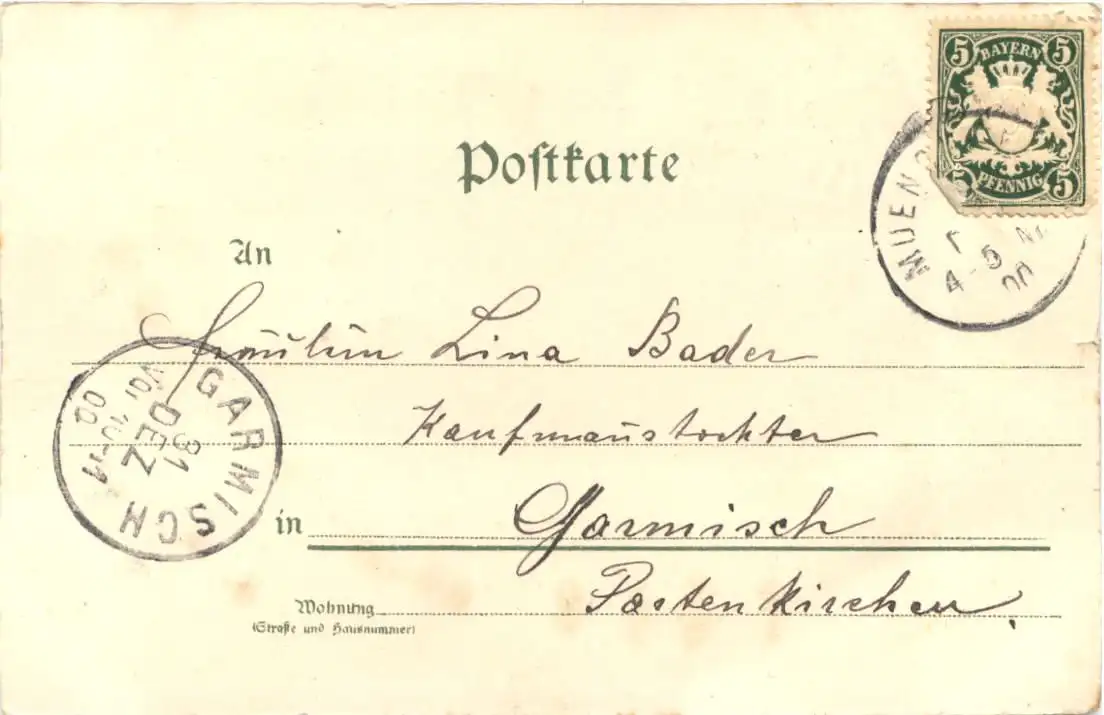 5 BAYERN 5
5 PFENNIG 5
MUEN
4-5 N
00
Postkarte
An
Fräulein Lina Bader
Kaufmannstochter
in Garmisch
Wohnung Partenkirchen
(Straße und Hausnummer)
GARMISCH
31
DEZ
Vor 10-11
00